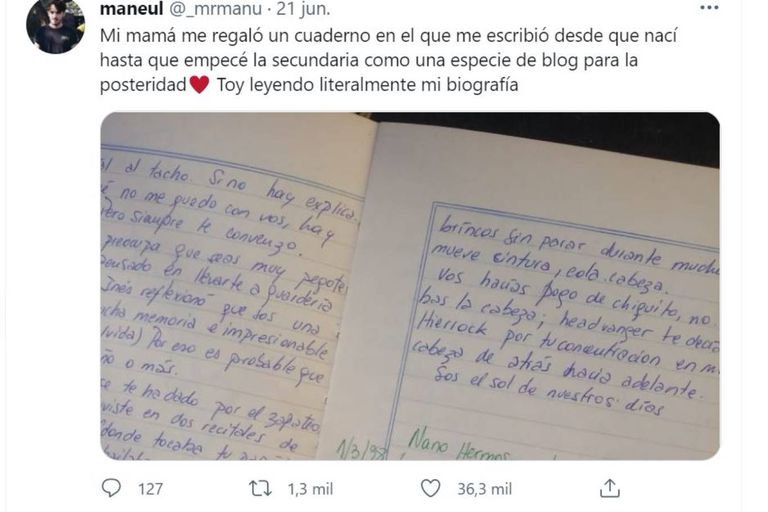 maneul @_mrmanu · 21 jun.
Mi mamá me regaló un cuaderno en el que me escribió desde que nací
hasta que empecé la secundaria como una especie de blog para la
posteridad♥ Toy leyendo literalmente mi biografía
al tacho. Si no hay explica.
no me quedo con vos, hay
Pero siempre te convenzo.
preocupa que seas muy pegote
pensado en llevarte a guardería
Inés reflexionó que sos una
memoria e impresionable
Por eso es probable que
o más.
te ha dado por el zapateo
en dos recitales de
donde tocaba tu
1/3/98
brincos sin parar durante mucho
mueve cintura, cola, cabeza.
Vos hacías pogo de chiquito, no
bas la cabeza; headvanger te decía
Hierrock por tu concentración en m
cabeza de atrás hacia adelante.
Sos el sol de nuestros días
Nano Hermos
127 1,3 mil 36,3 mil